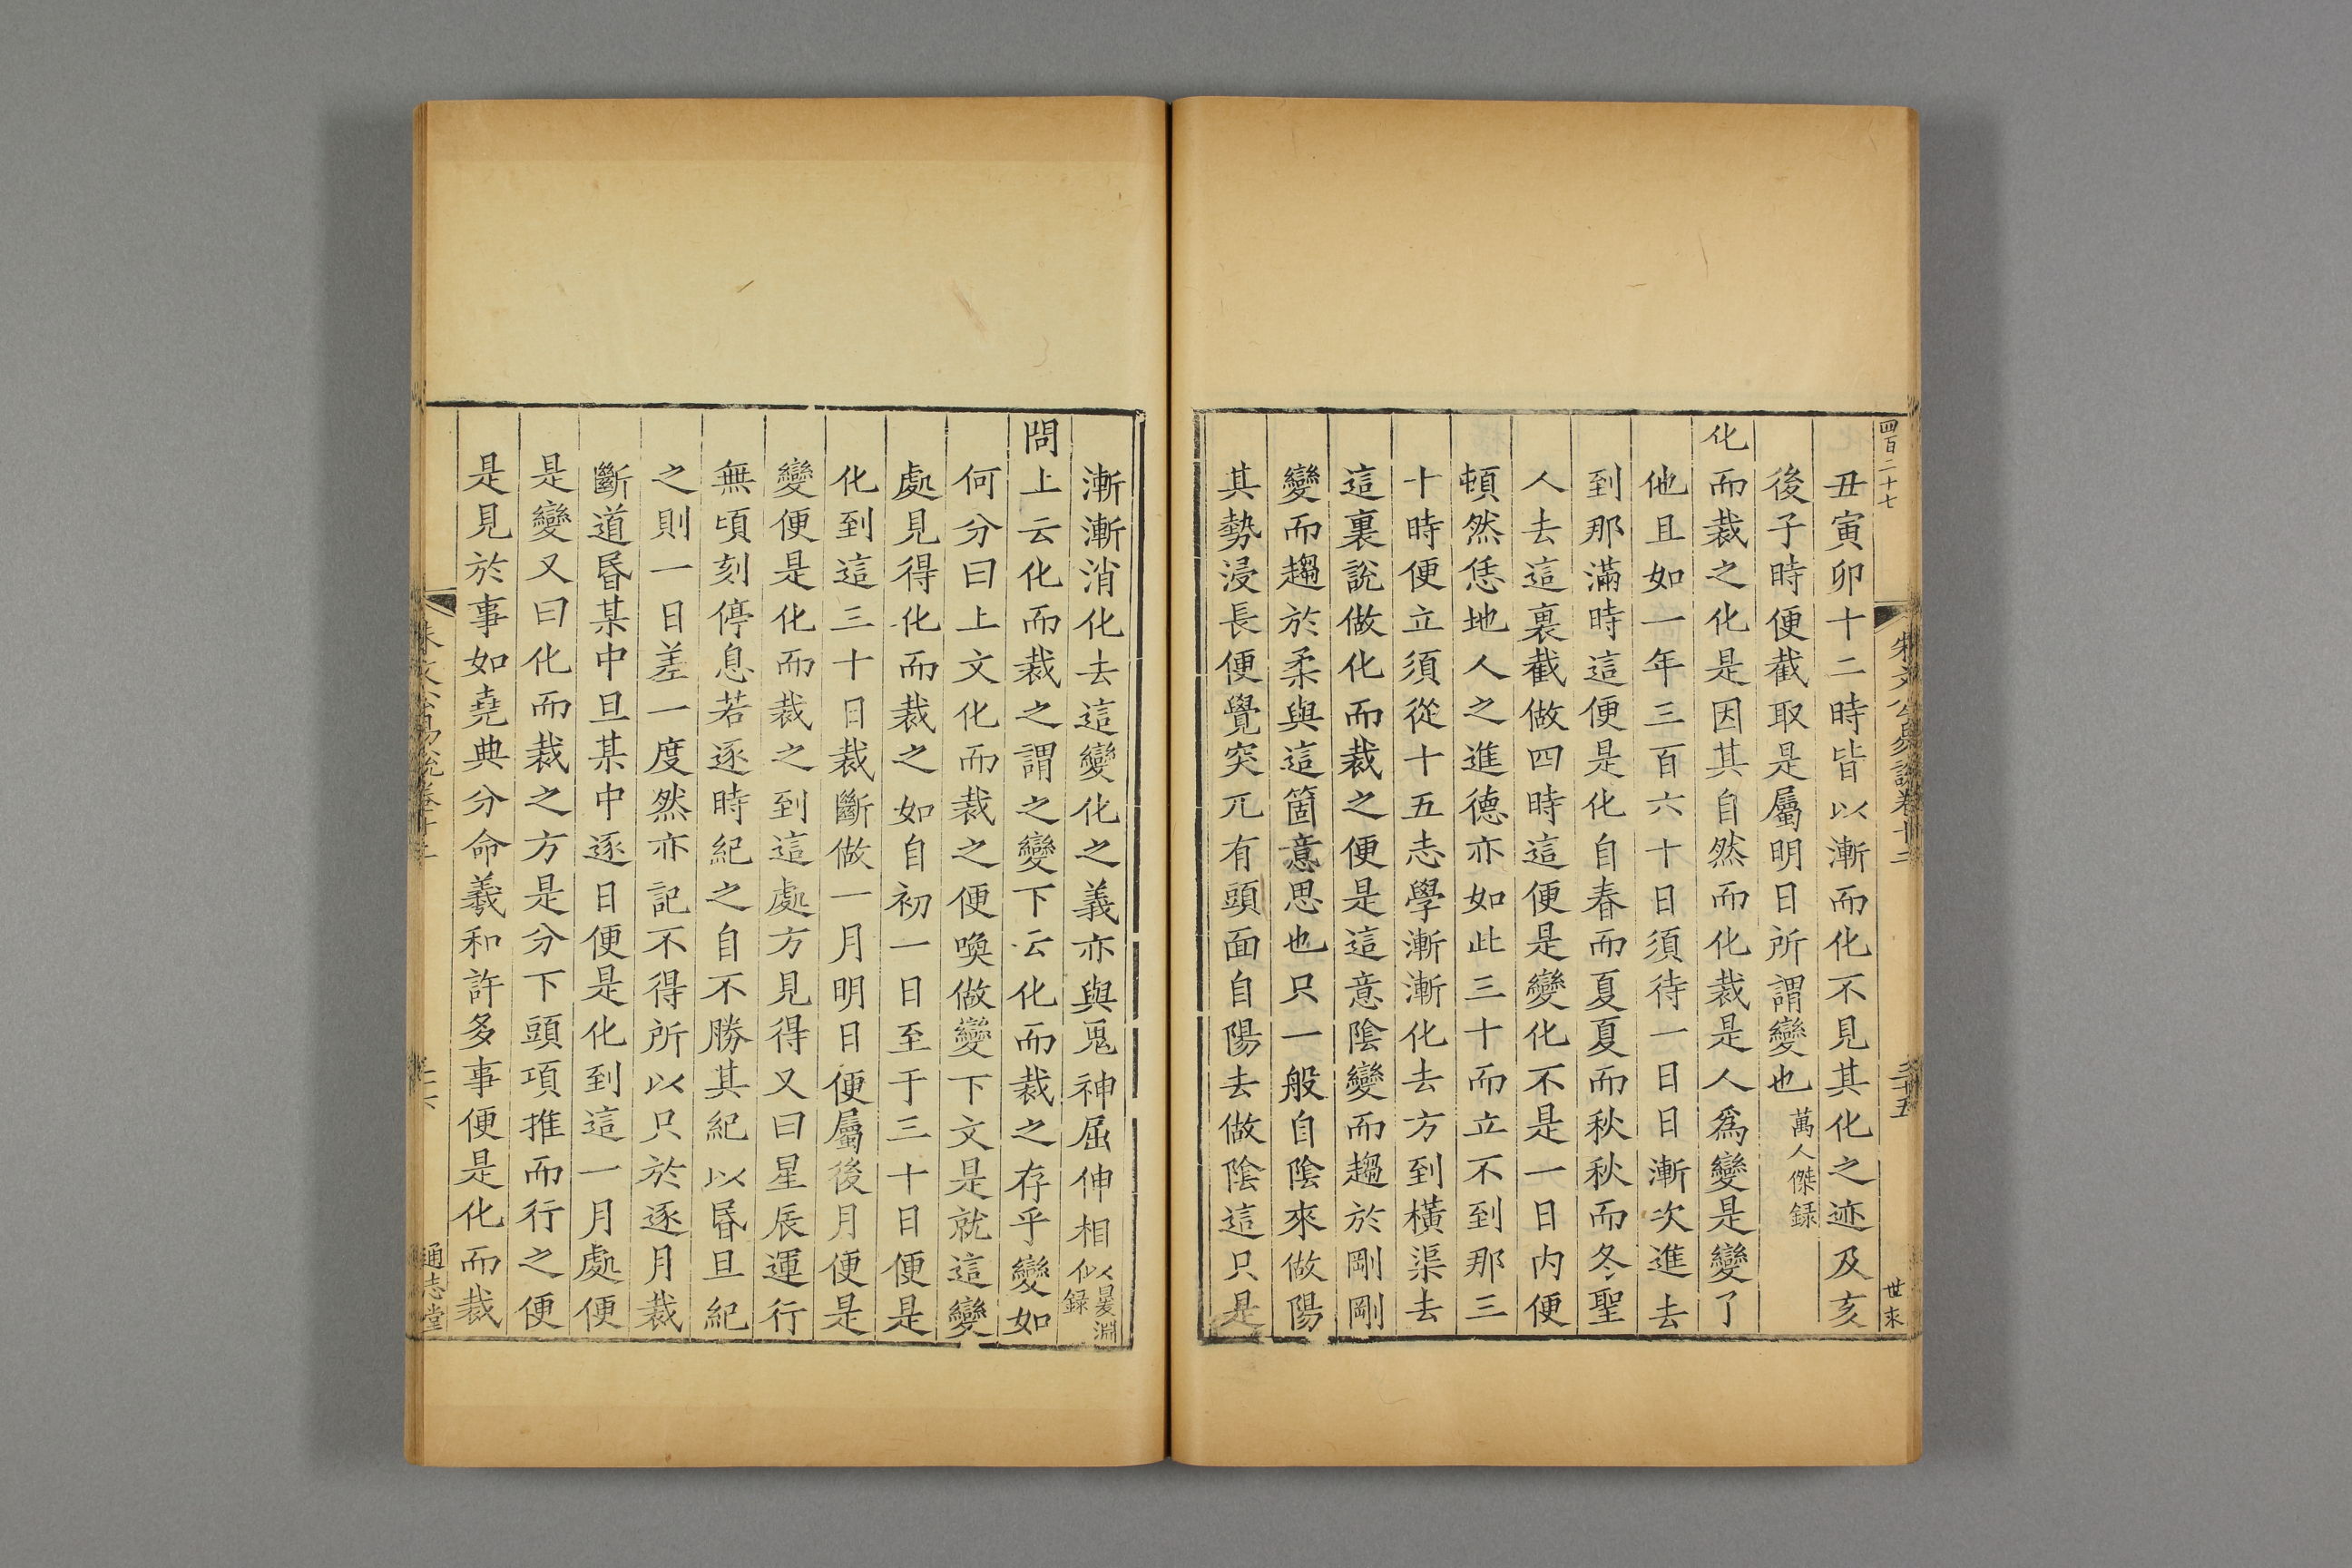 四百二十七
朱文公易說卷十三
三十五
世求
丑寅卯十二時皆以漸而化不見其化之迹及亥
後子時便截取是屬明日所謂變也萬人傑録
化而裁之化是因其自然而化裁是人爲變是變了
他且如一年三百六十日須待一日日漸次進去
到那滿時這便是化自春而夏夏而秋秋而冬聖
人去這裏截做四時這便是變化不是一日内便
頓然恁地人之進德亦如此三十而立不到那三
十時便立須從十五志學漸漸化去方到橫渠去
這裏說做化而裁之便是這意陰變而趨於剛剛
變而趨於柔與這箇意思也只一般自陰來做陽
其勢浸長便覺突兀有頭面自陽去做陰這只是
漸漸消化去這變化之義亦與鬼神屈伸相似㬊淵録
問上云化而裁之謂之變下云化而裁之存乎變如
何分曰上文化而裁之便喚做變下文是就這變
處見得化而裁之如自初一日至于三十日便是
化到這三十日裁斷做一月明日便屬後月便是
變便是化而裁之到這處方見得又曰星辰運行
無頃刻停息若逐時紀之自不勝其紀以昬旦紀
之則一日差一度然亦記不得所以只於逐月裁
斷道昬某中旦某中逐日便是化到這一月處便
是變又曰化而裁之方是分下頭項推而行之便
是見於事如堯典分命羲和許多事便是化而裁
通志堂